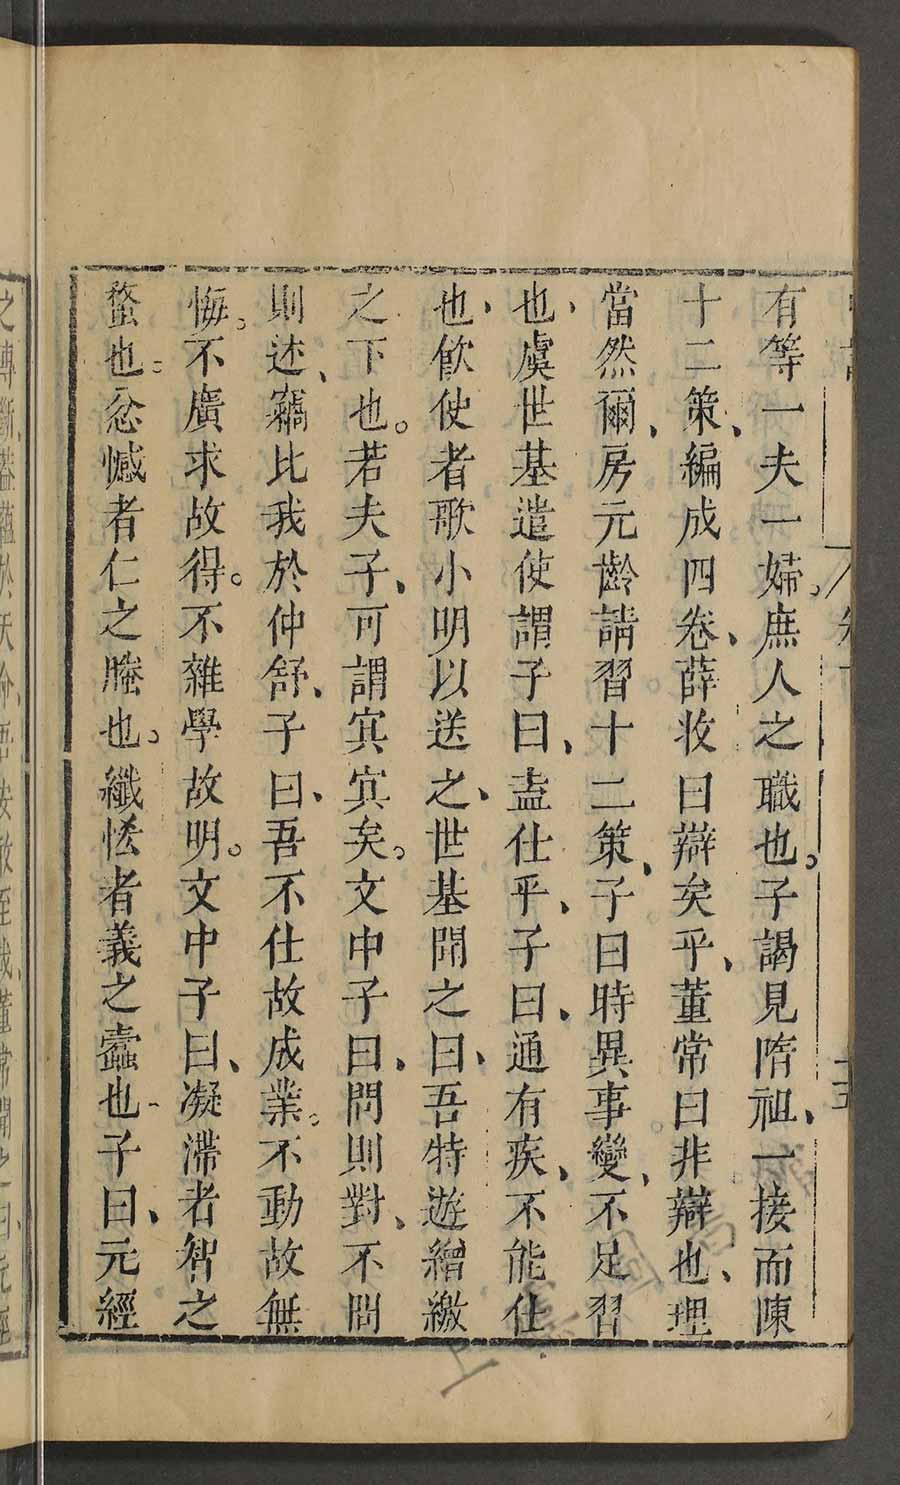 有等一夫一婦。庶人之職也。子謁見隋祖、一接而陳
十二策、編成四卷、薛收曰辯矣乎、董常曰非辯也、理
當然爾、房元齡請習十二策、子曰時異事變、不足習
也、虞世基遣使謂子曰、盍仕乎、子曰、通有疾、不能仕
也、飮使者歌小明以送之、世基聞之曰、吾特遊繒繳
之下也。若夫子、可謂冥冥矣。文中子曰、問則對、不問
則述、竊比我於仲舒、子曰、吾不仕故成業。不動故無
悔。不廣求故得。不雜學故明。文中子曰、凝滯者智之
蝥也。忿憾者仁之螣也。纖悋者義之蠹也、子曰、元經